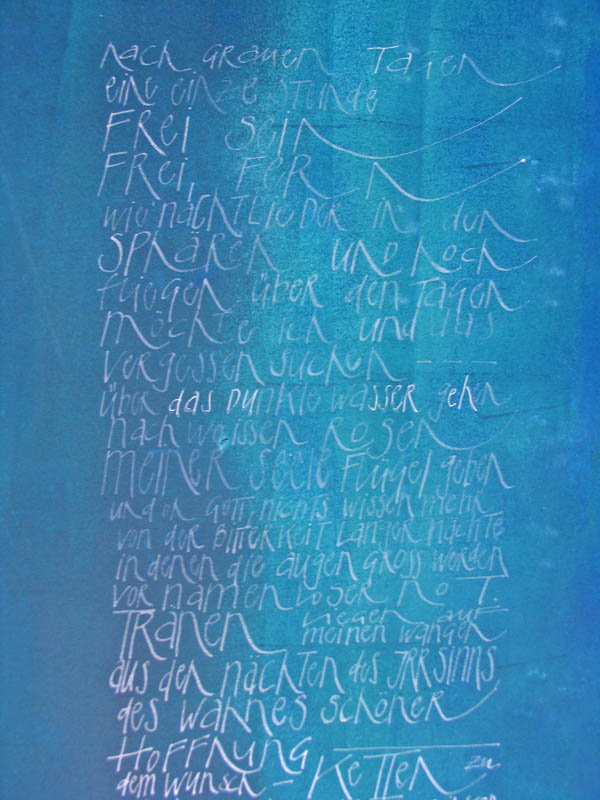 nach grauen Tagen
eine einzige Stunde
FREI sein
FREI, FERN
wie nachtlieder in den
SPHÄREN und hoch
fliegen über den Tagen
möchte ich und das
vergessen suchen ---
über das dunkle wasser gehen
nach weissen ROSEN
meiner seele Flügel geben
und oh gott, nichts wissen mehr
von der Bitterkeit langer nächte
in denen die augen gross werden
vor namenloser NOT.
TRÄNEN liegen auf
meinen wangen
aus den nächten des IRRSINNS,
des wahnes schöner
HOFFNUNG
dem wunsch - KETTEN zu